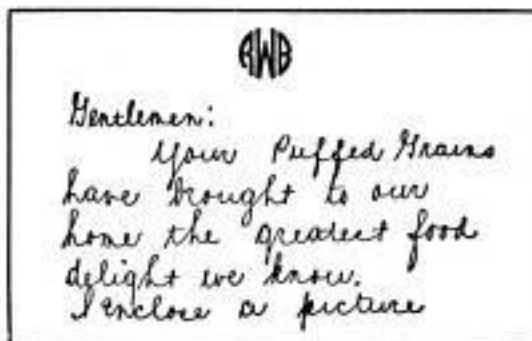 AWB
Gentlemen:
Your Puffed Grains
have brought to our
home the greatest food
delight we know.
I enclose a picture